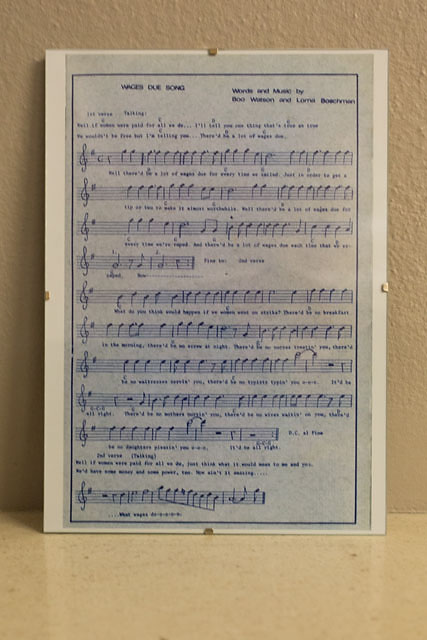 WAGES DUE SONG
Words and Music by
Boo Watson and Lorna Boschman
1st verse Talking:
Well if women were paid for all we do... I'll tell you one thing that's true
We wouldn't be free but I'm telling you... There'd be a lot of wages due.
Well there'd be a lot of wages due for every time we smiled. Just in order to get a
tip or two to make it almost worthwhile. Well there'd be a lot of wages due for
every time we're raped. And there'd be a lot of wages due each time that we es-
caped. Now
Fine to: 2nd verse
What do you think would happen if we women went on strike? There'd be no breakfast
in the morning, there'd be no screw at night. There'd be no nurses treatin' you, there'd
be no waitresses servin' you, there'd be no typists typin' you o-o-o. It'd be
all right. There'd be no mothers you, there'd be no wives waitin' on you, there'd
be no daughters pleasin' you o-o-o. It'd be all right.
D.C. al Fine
2nd verse (Talking)
Well if women were paid for all we do, just think what it would mean to me and you.
We'd have some money and some power, too. Now ain't it amazing.....
....What wages do-o-o-o-o-